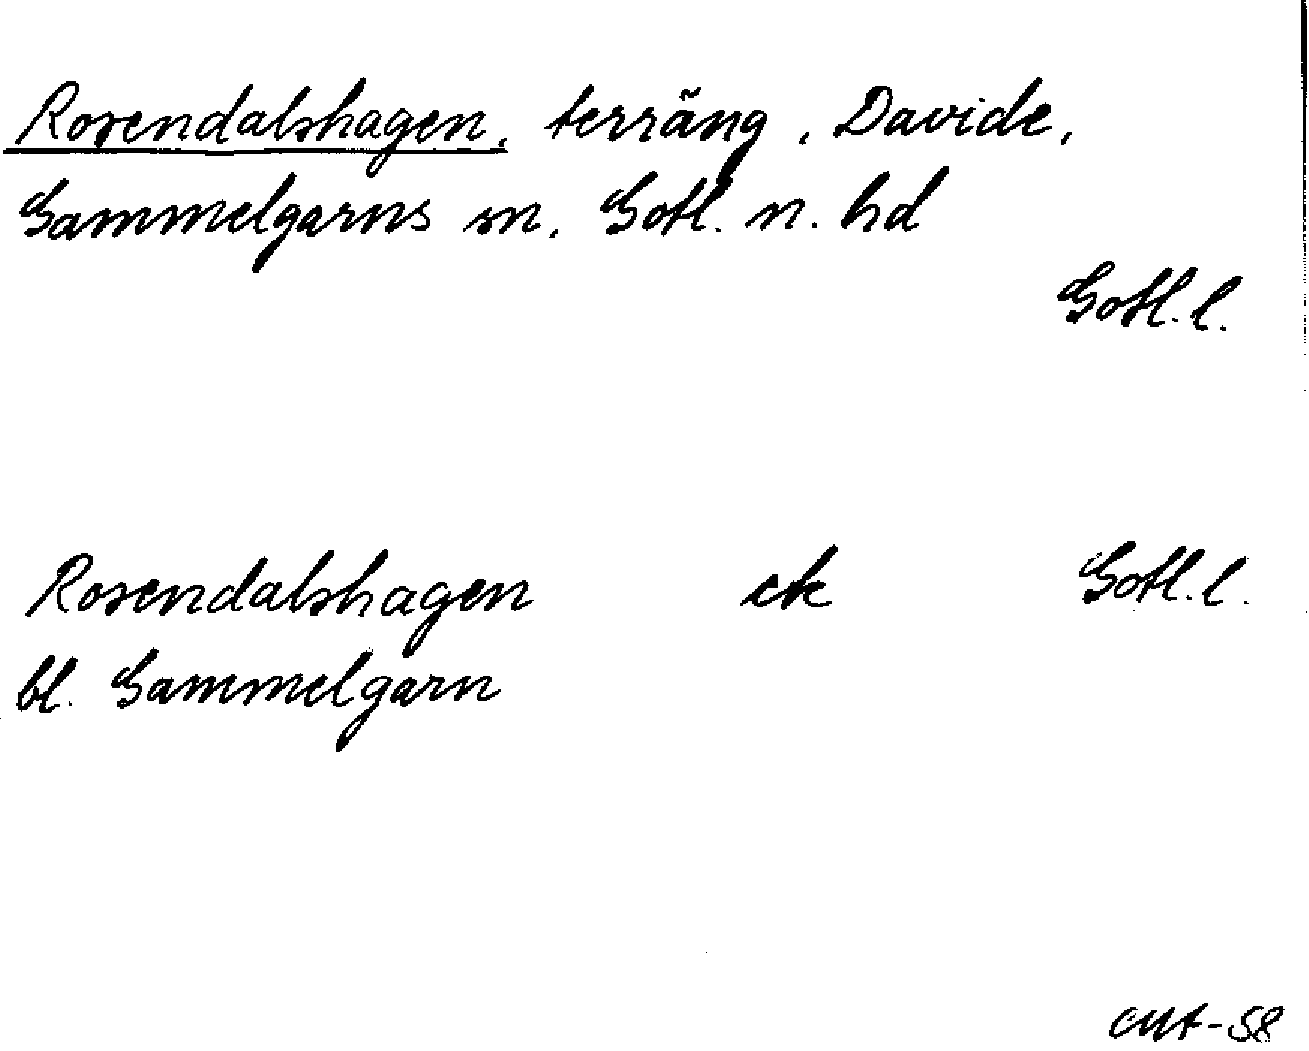 Rosendalshagen, terräng, Davide,
Gammelgarns sn, Gotl. n. hd
Gotl. l.
Rosendalshagen ek Gotl. l.
bl. Gammelgarn
CMA-58